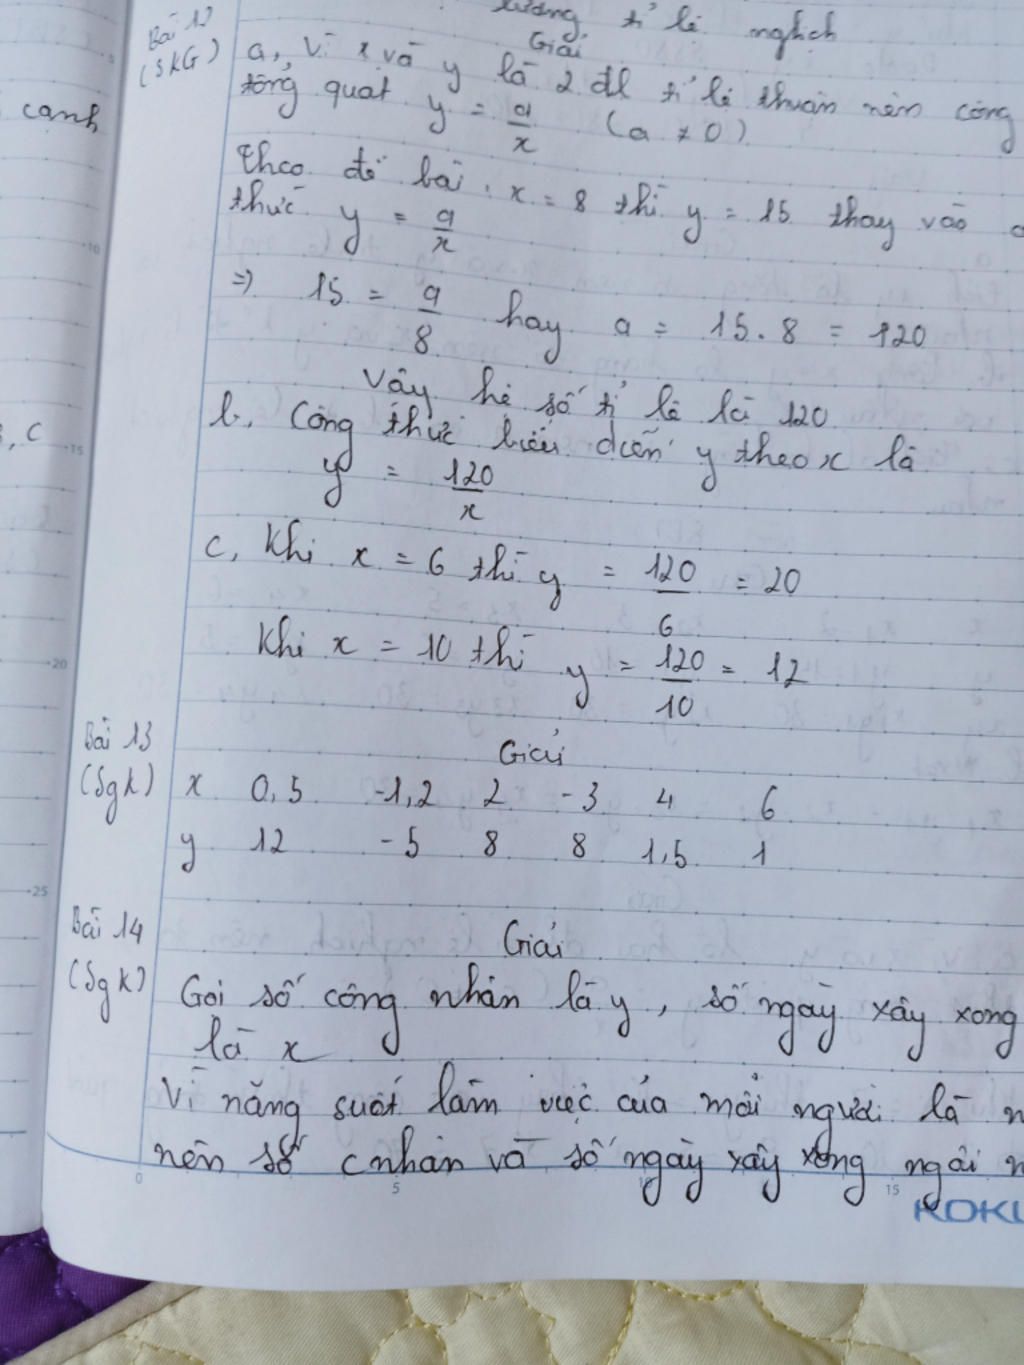 lượng tỉ lệ nghịch
Bài 12
(SKG)
Giải
a, Vì x và y là 2 đl tỉ lệ thuận nên công
tổng quát y = a/x (a ≠ 0)
canh
theo đề bài, x = 8 thì y = 15 thay vào c
thức y = a/x
=> 15 = a/8 hay a = 15.8 = 120
Vậy hệ số tỉ lệ là 120
, C
b, Công thức biểu diễn y theo x là
y = 120/x
c, Khi x = 6 thì y = 120/6 = 20
Khi x = 10 thì y = 120/10 = 12
Bài 13
(Sgk)
Giải
x 0,5 -1,2 2 -3 4 6
y 12 -5 8 8 1,5 1
Bài 14
(Sgk)
Giải
Gọi số công nhân là y, số ngày xây xong
là x
Vì năng suất làm việc của mỗi người là n
nên số cnhân và số ngày xây xong ngôi n
10
15
20
25
0 5 10 15
KOKU